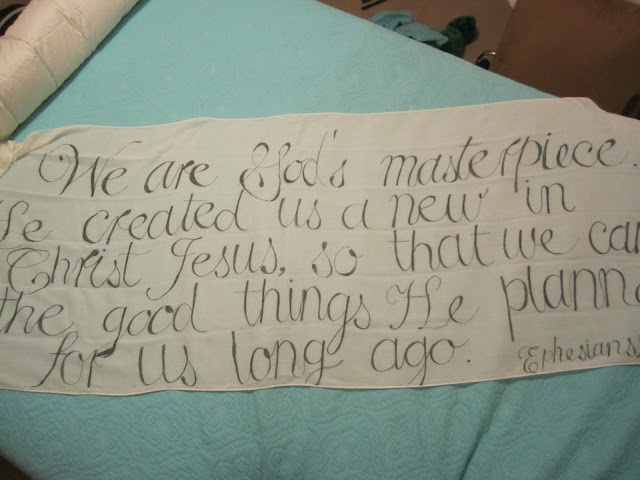 We are God's masterpiece.
He created us a new in
Christ Jesus, so that we can
the good things He plann
for us long ago.
Ephesians